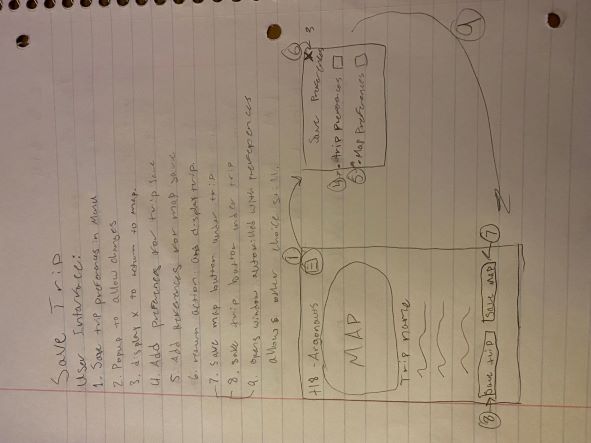 Save Trip
User Interface:
1. Save trip preferences in Menu
2. Popup to allow changes
3. display x to return to map.
4. Add preferences for trip save
5. Add preferences for map save
6. return action and display trip.
7. Save map button under trip
8. save trip button under trip
9. opens window autofilled with preferences
allows other choice still.
1
6
t18 - Argonauts
Save Preferences
X
3
MAP
4
trip preferences
5
Map Preferences
Trip name
9
8
Save trip
Save map
7